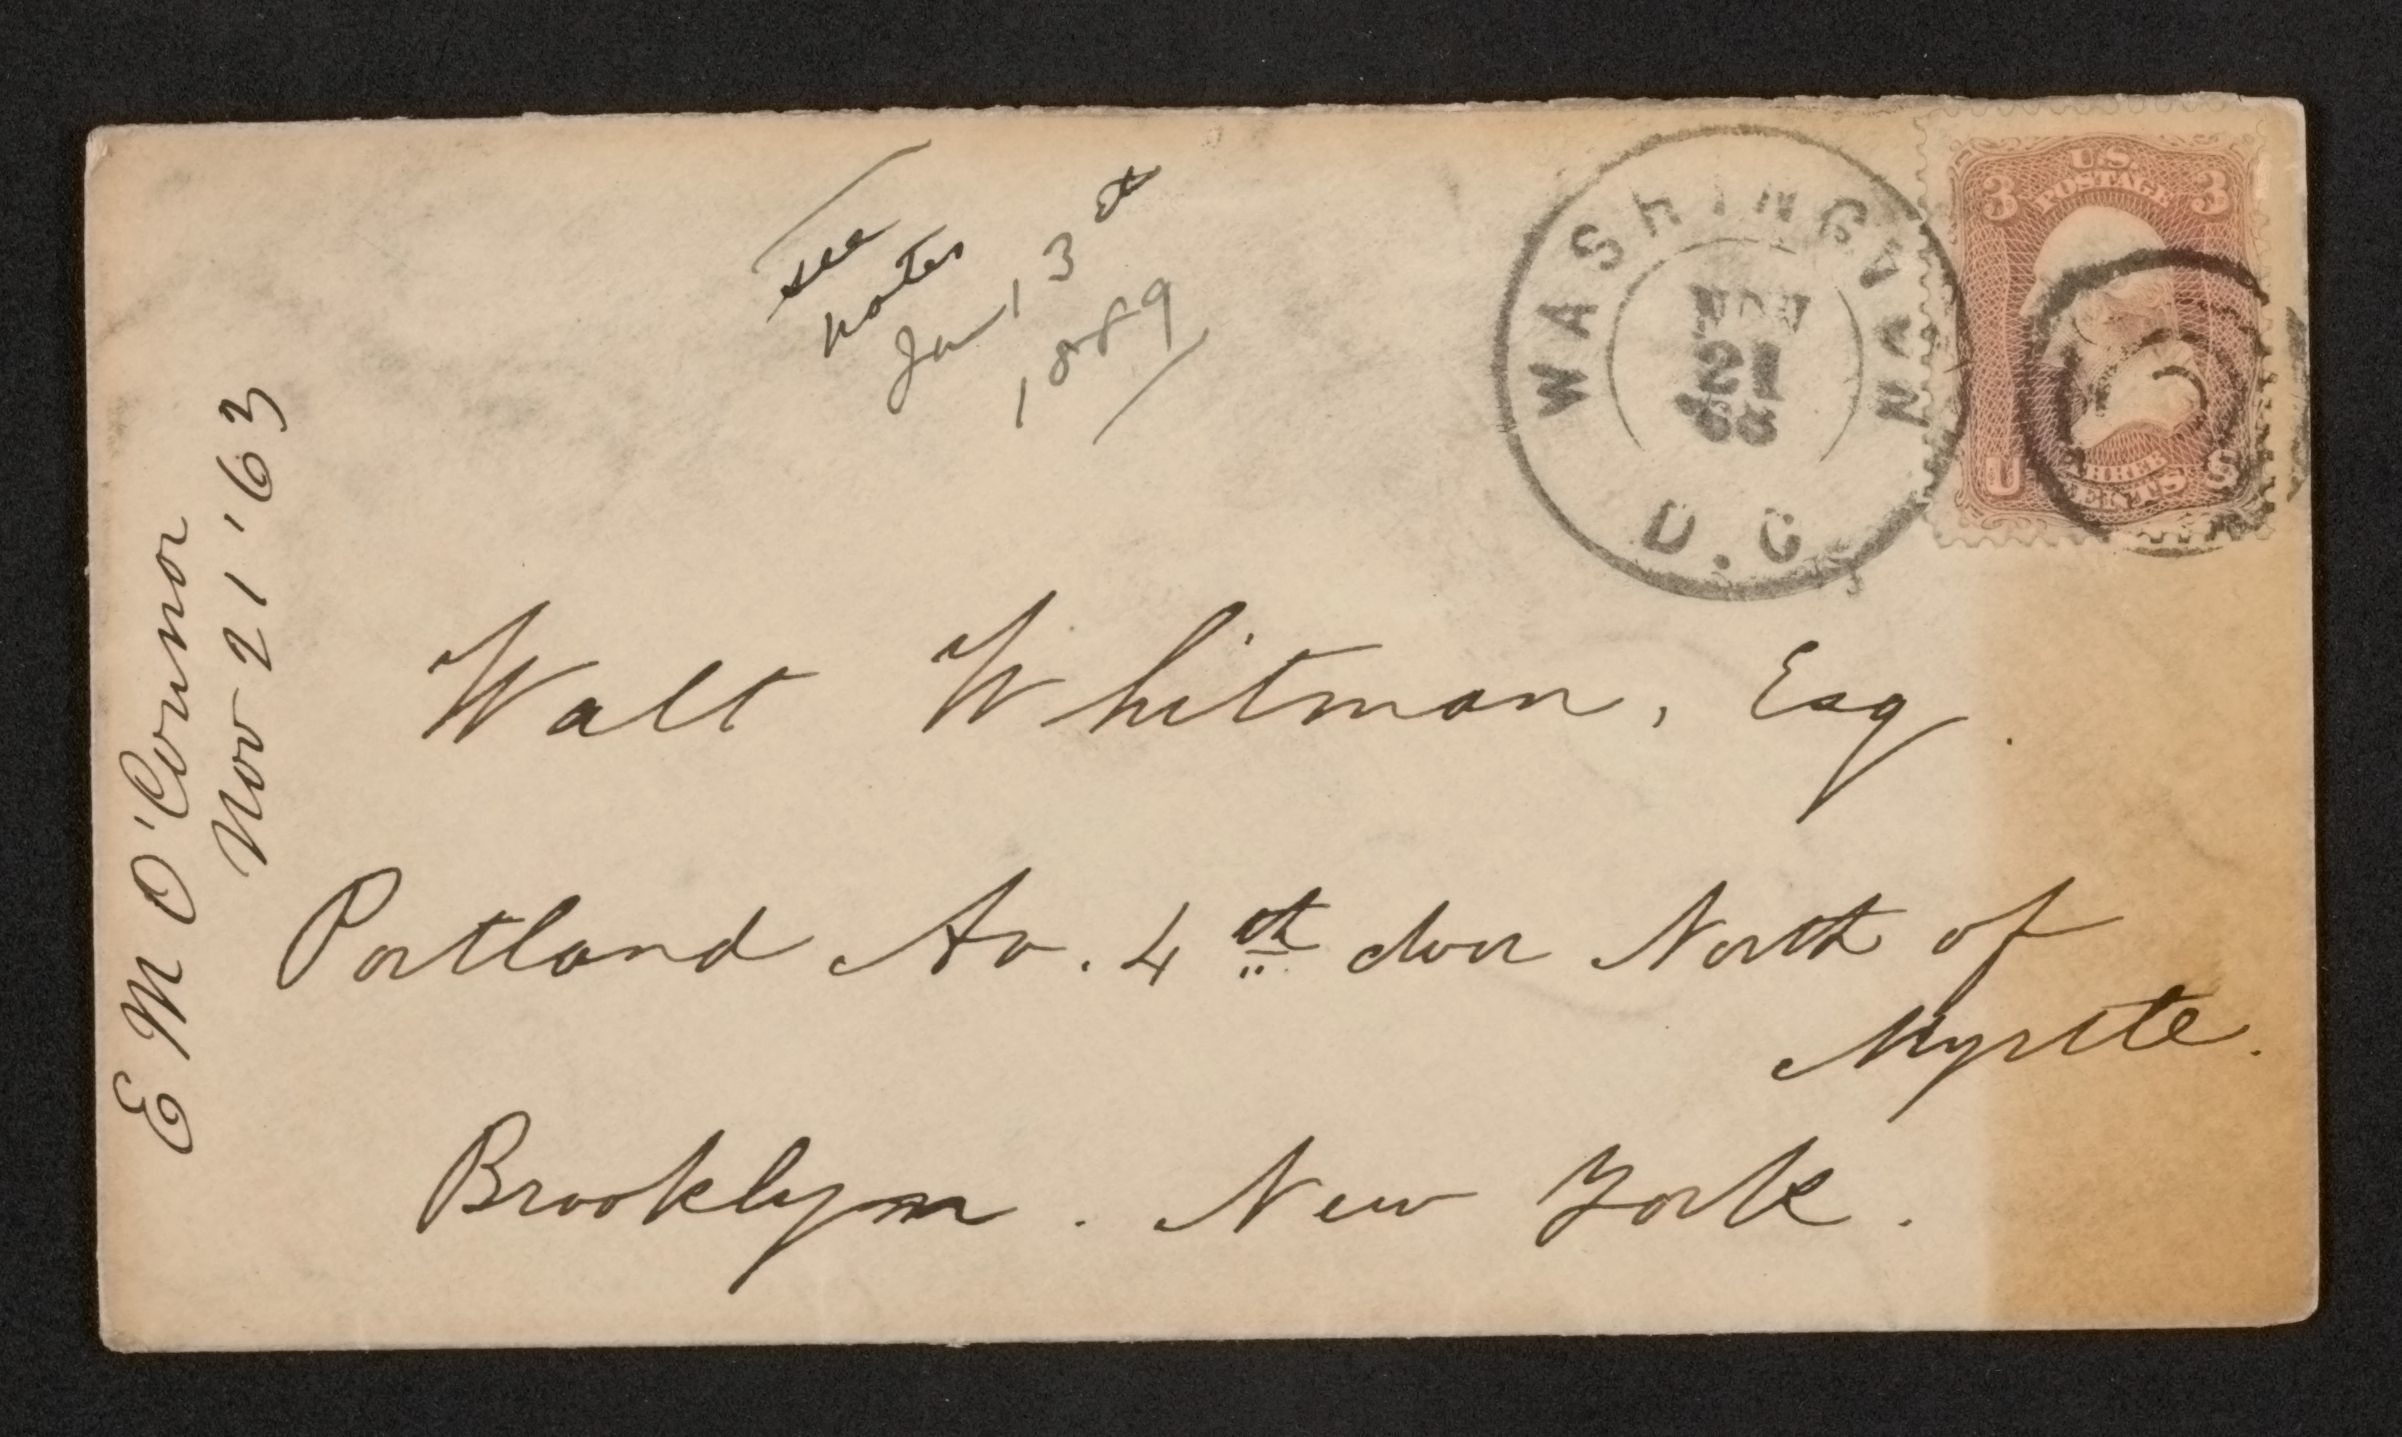 see
notes
Jan 13th
1889
WASHINGTON
NOV
21
63
D.C.
U.S.
POSTAGE
3 3
THREE
CENTS
U S
E M O'Connor
Nov 21 '63
Walt Whitman, Esq.
Portland Av. 4th door North of
Myrtle.
Brooklyn. New York.